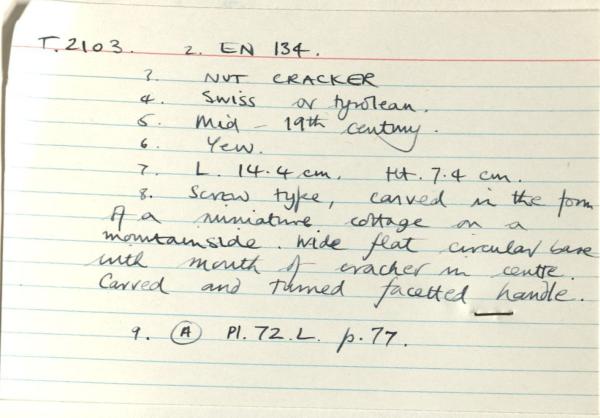 T.2103. 2. EN 134.
3. NUT CRACKER
4. Swiss or tyrolean.
5. Mid - 19th century.
6. Yew.
7. L. 14.4 cm. Ht. 7.4 cm.
8. Screw type, carved in the form
of a miniature cottage on a
mountainside. Wide flat circular base
with mouth of cracker in centre.
Carved and turned facetted handle.
9. (A) Pl. 72. L. p. 77.